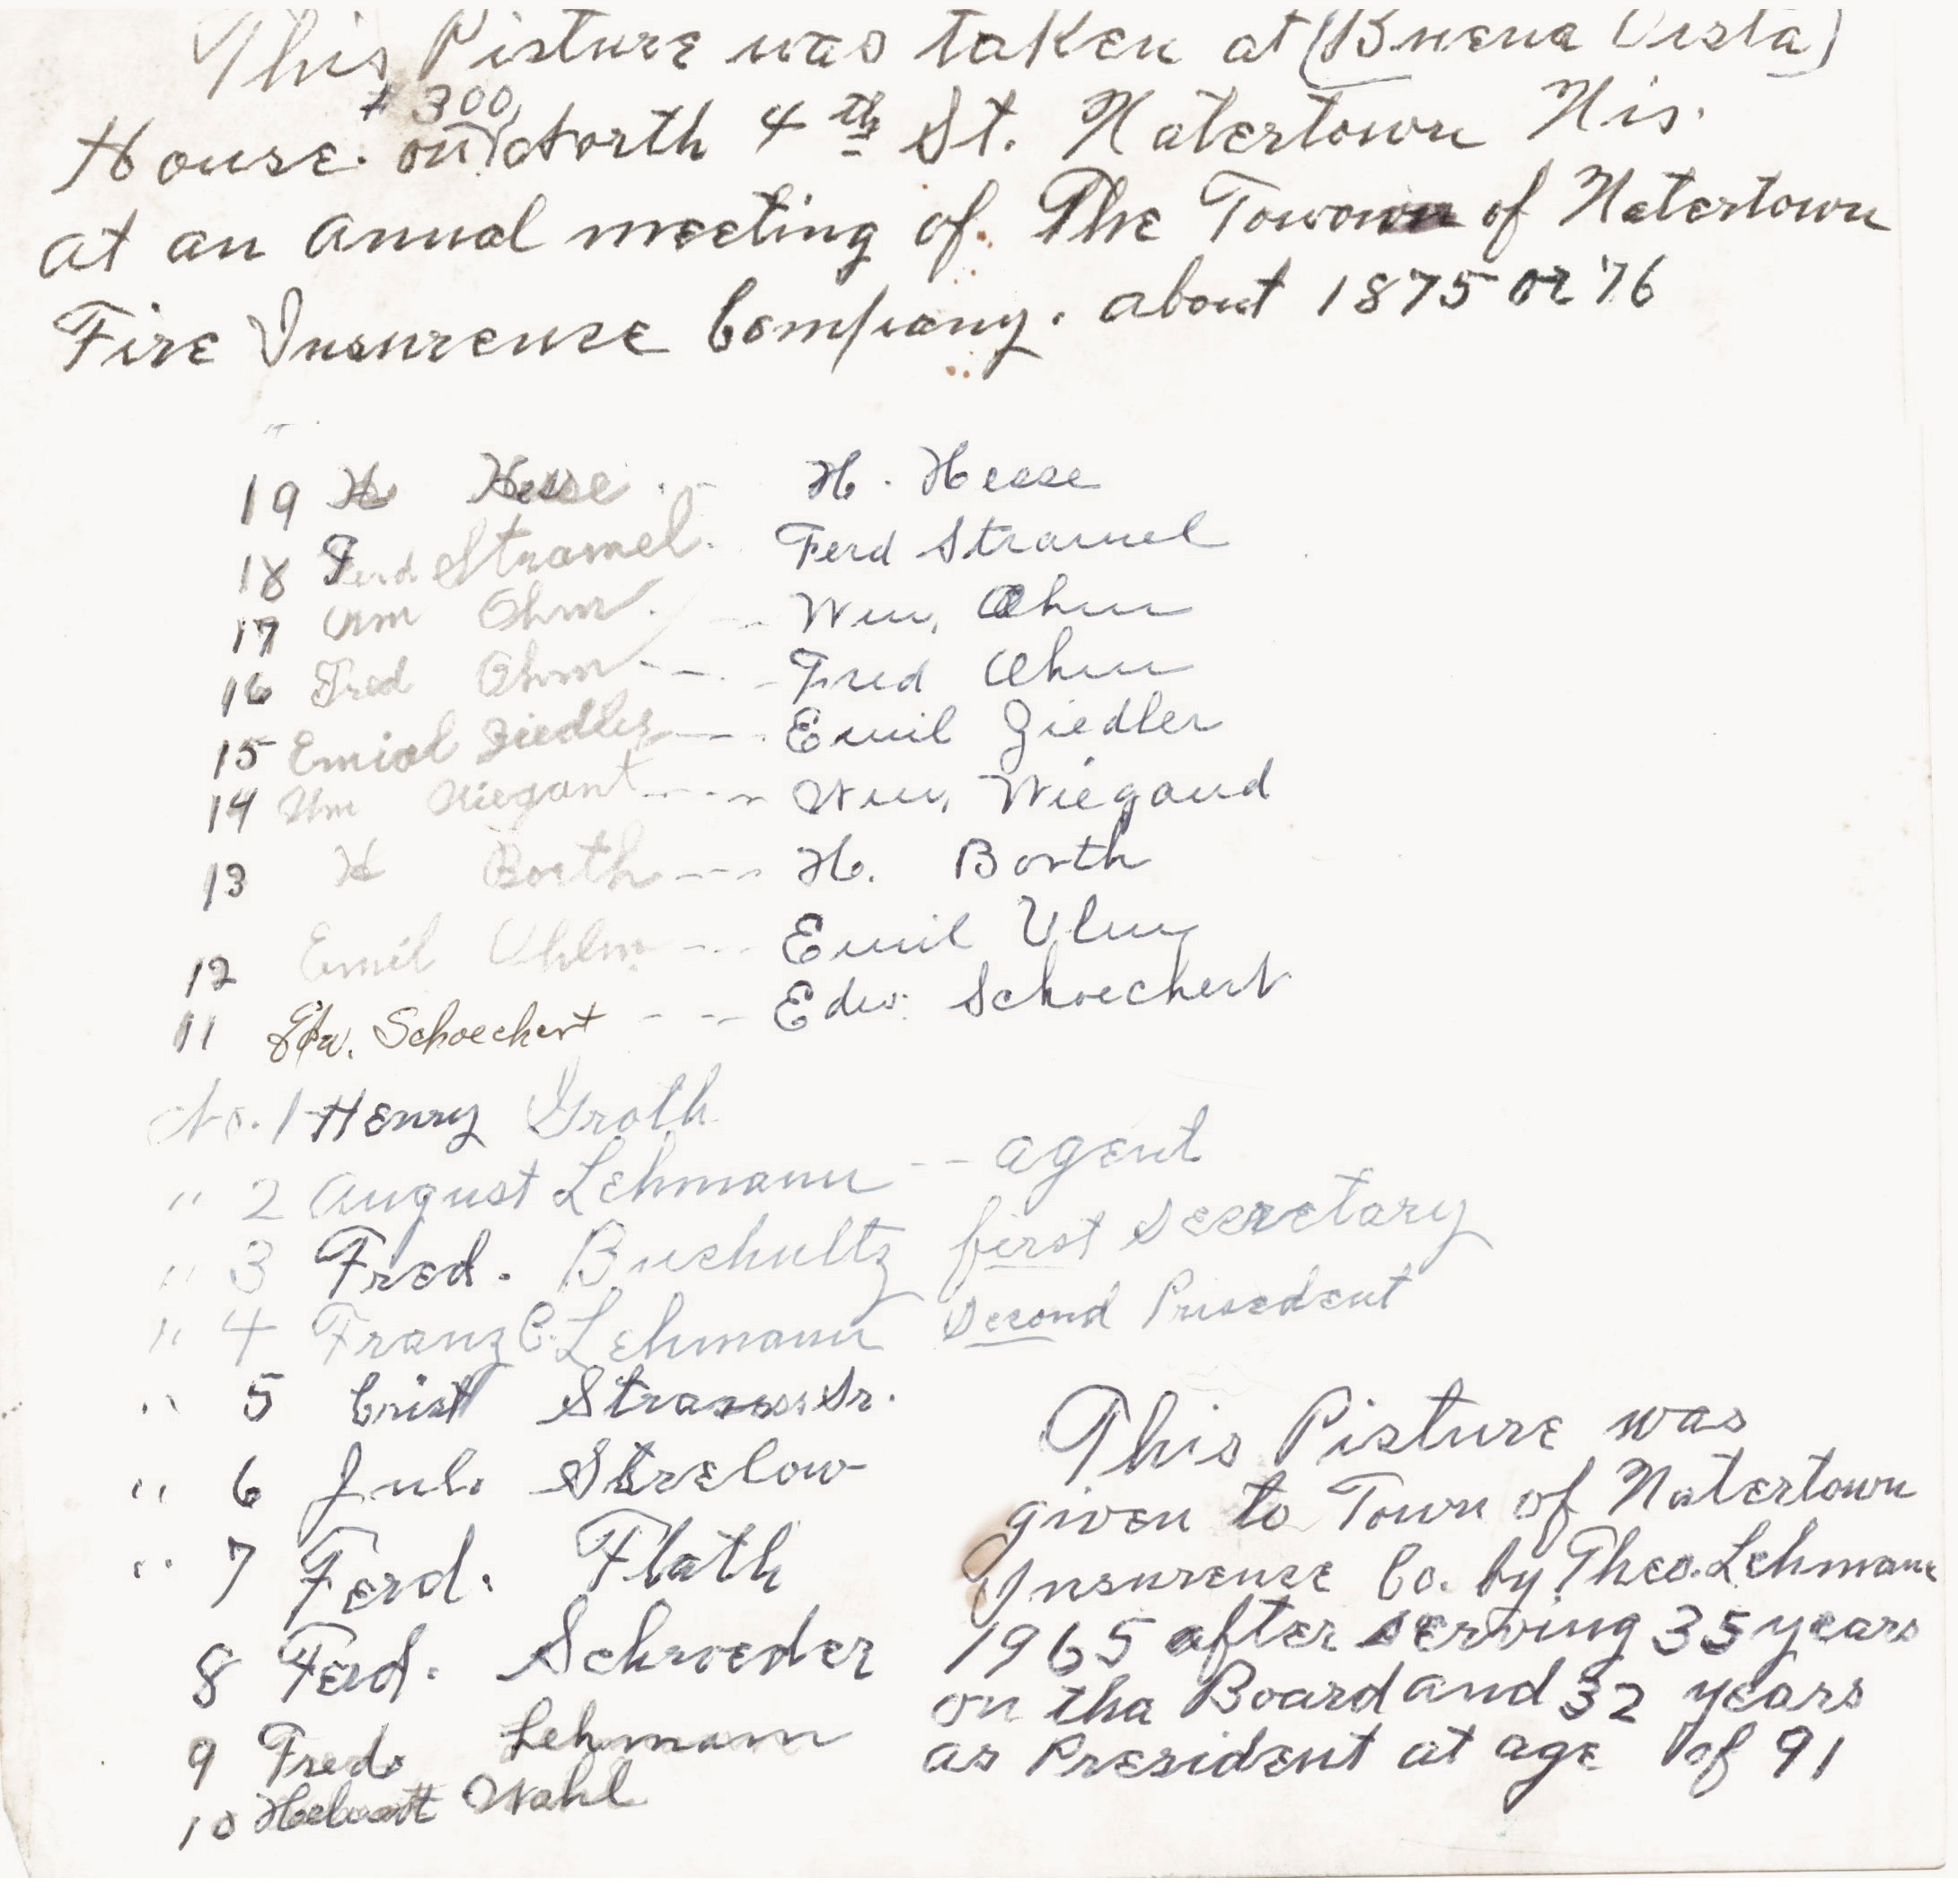 This Picture was taken at (Buena Vista)
# 300
House. on North 4th St. Watertown Wis.
at an anual meeting of. The Towown of Watertown
Fire Insurense Company. about 1875 or '76
19 H Hesse - H. Hesse
18 Ferd Stramel. Ferd Stramel
17 Wm Ohm. -- Wm. Ohm
16 Fred Ohm -- - Fred Ohm
15 Emiol Ziedler -- - Emil Ziedler
14 Wm Wiegant --- Wm. Wiegand
13 H Borth --- H. Borth
12 Emil Uhlm --- Emil Ulm
11 Edw. Schoechert --- Edw. Schoechert
No. 1 Henry Groth
" 2 August Lehmann -- agent
" 3 Fred. Buchultz first secretary
" 4 Franz C. Lehmann second Prisedent
" 5 Crist Strauss Sr.
" 6 Jul. Strelow
" 7 Ferd. Flath
8 Ferd. Schroeder
9 Fred. Lehmann
10 Wahl
This Picture was
given to Town of Watertown
Insurense Co. by Theo. Lehmann
1965 after serving 35 years
on tha Board and 32 years
as President at age of 91